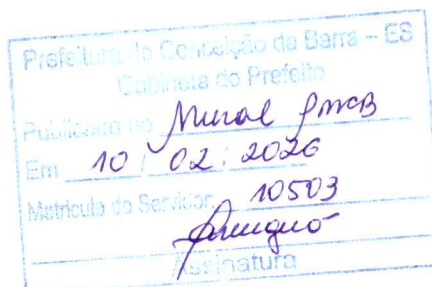 Prefeitura de Conceição da Barra – ES
Gabinete do Prefeito
Publicado no Mural PMCB
Em 10 / 02 / 2026
Matrícula do Servidor 10503
Assinatura